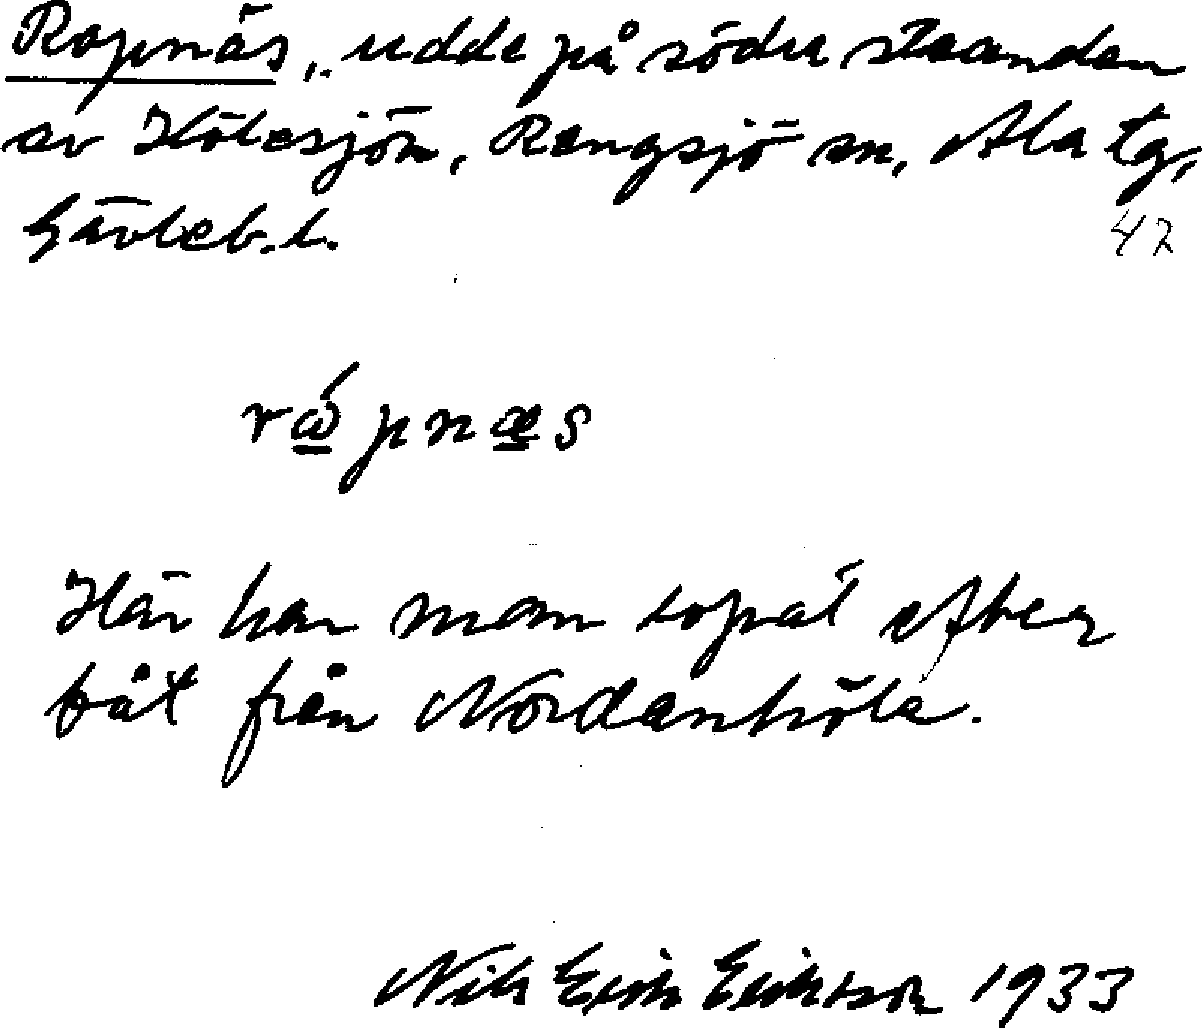 Ropnäs, udde på södra stranden
av Hölesjön, Rengsjö sn, Ala tg,
Gävleb. l.
42
rápnæs
Här har man ropat efter
båt från Nordanhöle.
Nils Erik Eriksson 1933